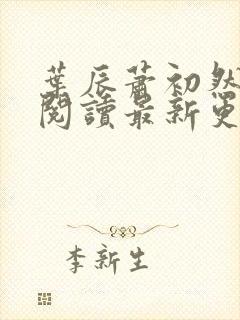 葉辰蕭初然
閱讀最新更
李新生